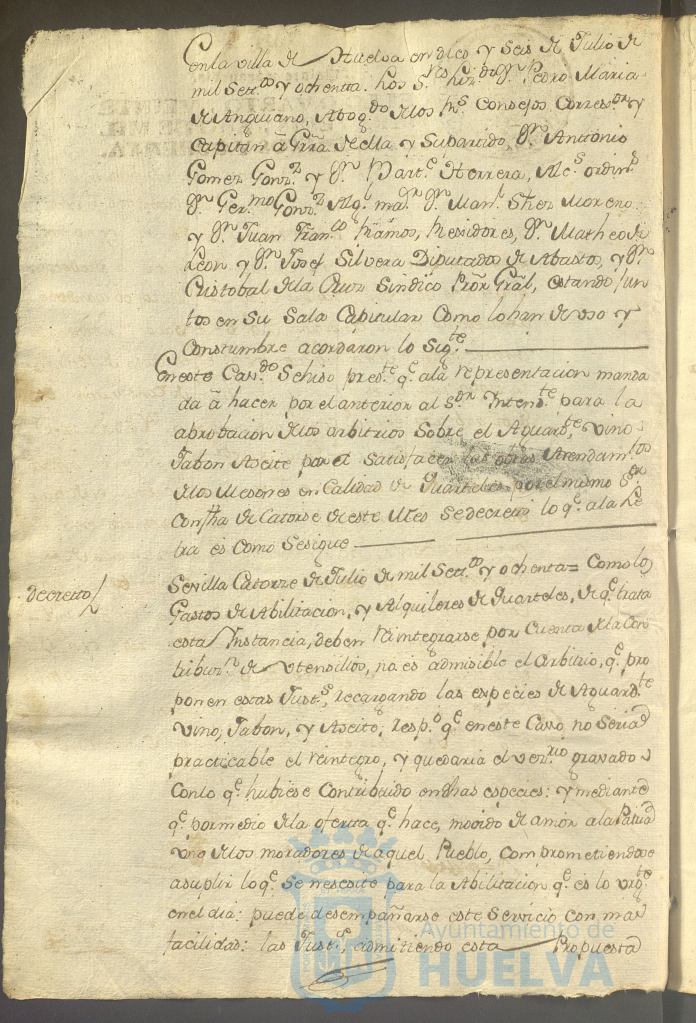 En la villa de Huelva en diez y Seis de Julio de
mil Settos y ochenta, los Sres Lizdo Dn Pedro Maria
de Anguiano, Abogdo de los Rs Consejos Corregor y
Capitan à Grra de ella y Supartido, Dn Antonio
Gomez Gonz.z y Dn Marte Herrera, Alcs ordins
Dn Germo Gonz.z Algl mar Dn Manl Shez Moreno
y Dn Juan Franco Ramos, Rexidores, Dn Matheo de
Leon y Dn Josef Silvera Diputados de Abastos, y Dn
Cristobal de la Cruz Sindico Pror Gral, estando jun
tos en Su Sala Capitular Como lo han de uso y
Constumbre acordaron lo Sigte
En este Cavdo Sehiso preste qe ala representacion manda
da à hacer por el anterior al Sor Intendte para la
aprobacion de los arbitrios Sobre el Aguardte, vino
Jabon Aseite para Satisfacer las obras Arendamtos
de los Mesones en Calidad de Quarteles por el mismo Sor
Con fha de Catorse de este Mes Se decretó lo qe ala Le
tra es como Sesigue
decretto
Sevilla Catorze de Julio de mil Settos y ochenta = Como los
Gastos de Abilitacion, y Alquileres de Quarteles, de qe trata
esta Instancia, deben Reintegrarse por Cuenta de la Con
tribuzn de Utensilios, no es admisible el Arbitrio, qe pro
ponen estas Justs, recargando las especies de Aguardte
vino, Jabon, y Aseite; respo qe en este Casso no Seria
practicable el reintegro, y quedaria el vezrio gravado
Con lo qe hubiese Contribuido en dhas especies: y mediante
qe por medio de la oferta qe hace, movido de amor ala Patria
uno de los moradores de aquel Pueblo, Comprometiendose
a suplir lo qe Se nescesite para la Abilitacion qe es lo urgte
en el dia: puede desempañarse este Servicio con mas
facilidad: las Justs, admitiendo esta Propuesta
Ayuntamiento de
HUELVA